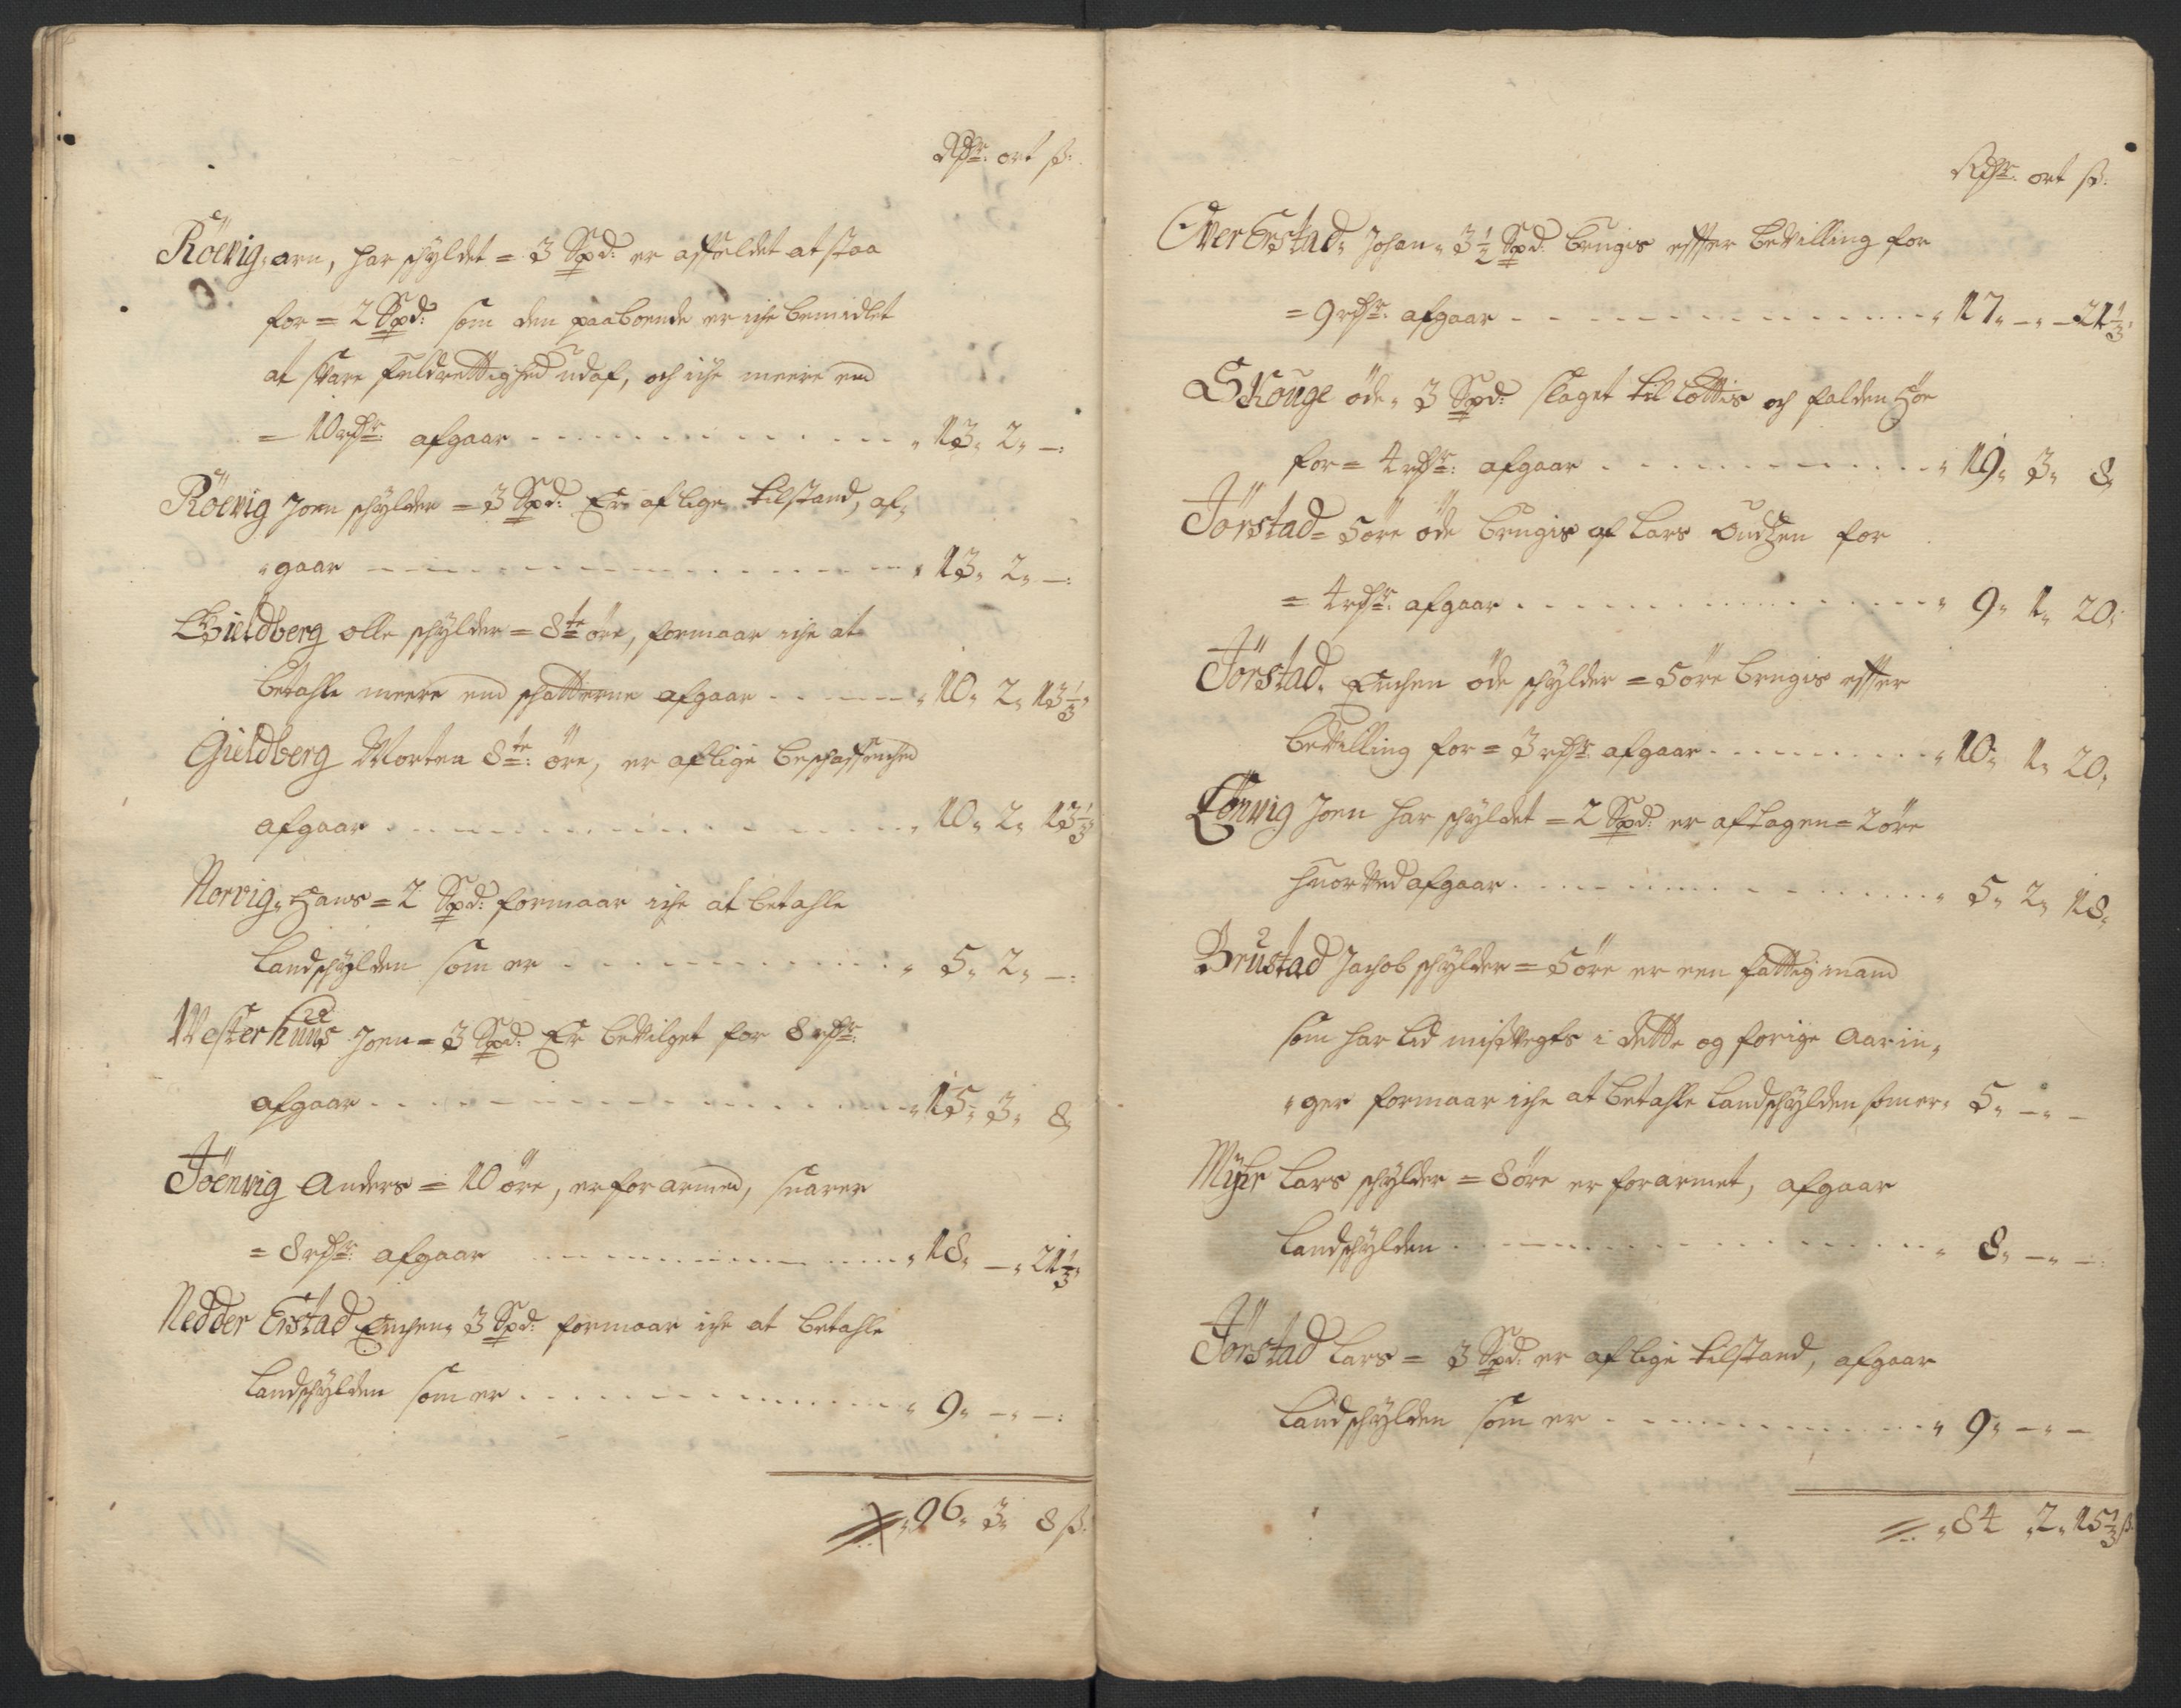 Rdr: ort ß:
Röevig, arn, har schyldet = 3 Spd: er affeldet at staa
for = 2 Spd: som den paaboende er iche bemidlet
at svare fuldrettighed udaf, och iche meere end
= 10 rdr: afgaar - - - 13, 2, -:
Röevig Joen schylder = 3 Spd: Er af lige tilstand, af,
"gaar - - - 13, 2, -:
Gieldberg olle schylder = 8te öre, formaar iche at
betahle meere end schatterne afgaar - - - 10, 2, 13⅓,
Gieldberg Morten 8te: öre, er af lige beschaffenhed
afgaar - - - 10, 2, 13⅓
Norvig, Hans = 2 Spd: formaar iche at betahle
Landschylden som er - - - 5, 2, -:
Westerhuus Joen = 3 Spd: Er bevilget for 8 rdr:
afgaar - - - 15, 3, 8,
Föenvig Anders = 10 öre, er forarmed, svarer
= 8 rdr: afgaar - - - 18, -, 21⅓,
Nedder Erstad Enchen, 3 Spd: formaar iche at betahle
Landschylden som er - - - 9, -, -:
96, 3, 8 ß:
Rdr: ort ß:
Over Erstad, Johan, 3½ Spd: brugis effter bevilling for
= 9 rdr: afgaar - - - 17, -, 21⅓,
Skouge öde, 3 Spd: slaget til og falden
for = 4 rdr: afgaar - - - 19, 3, 8,
Förstad = 5 öre öde brugis af Lars for
= 4 rdr: afgaar - - - 9, 1, 20,
Förstad, Enchen öde schylder = 5 öre brugis effter
bevilling for = 3 rdr: afgaar - - - 10, 1, 20,
Joen har schyldet = 2 Spd: er aftagen = 2 öre
huorved afgaar - - - 5, 2, 18,
Brustad Jachob schylder = 5 öre er een fattig mand
som har lid misvegts i dette og forige Aarin,
"ger formaar iche at betahle Landschylden som er, 5, -, -
Myhr Lars schylder = 8 öre er forarmet, afgaar
Landschylden - - - 8, -, -:
Förstad Lars = 3 Spd: er af lige tilstand, afgaar
Landschylden som er - - - 9, -, -
84, 2, 15⅓ ß